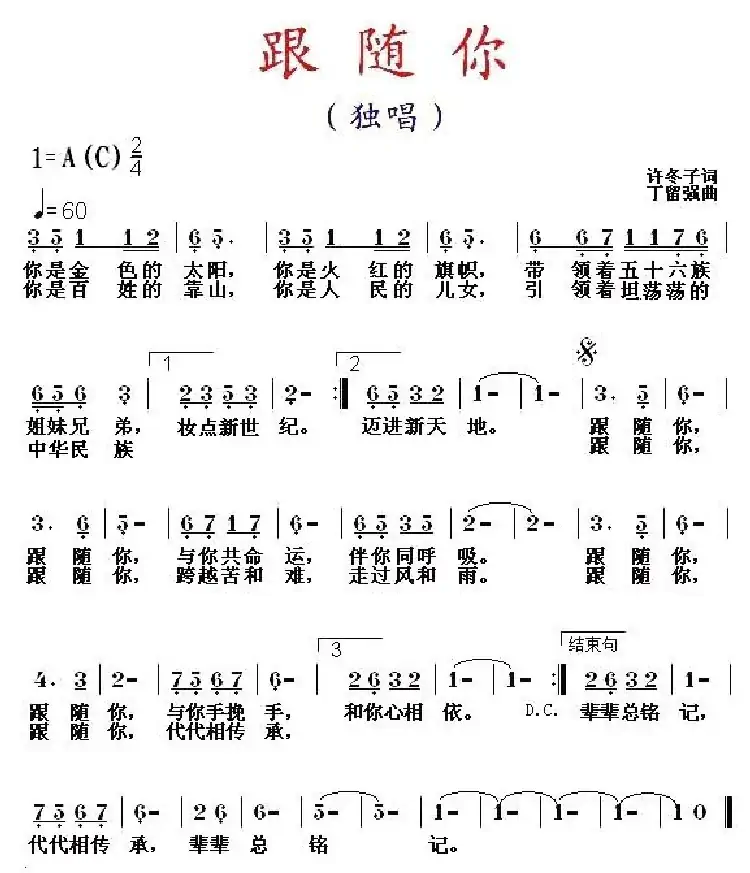 跟 随 你
（独唱）
1=A(C) 2/4
许冬子词
丁留强曲
♩=60
3 5 1 1 2 | 6 5. | 3 5 1 1 2 | 6 5. | 6 6 7 1 1 7 6
你是金 色的 太阳， 你是火 红的 旗帜， 带 领着五十六族
你是百 姓的 靠山， 你是人 民的 儿女， 引 领着坦荡荡的
1 2
6 5 6 3 | 2 3 5 3 | 2 - :| 6 5 3 2 | 1 - | 1 - | 3. 5 | 6 - |
姐妹兄 弟， 妆点新世 纪。 迈进新天 地。 跟 随 你，
中华民 族 跟 随 你，
3. 6 | 5 - | 6 7 1 7 | 6 - | 6 5 3 5 | 2 - | 2 - | 3. 5 | 6 - |
跟 随 你， 与你共命 运， 伴你同呼 吸。 跟 随 你，
跟 随 你， 跨越苦和 难， 走过风和 雨。 跟 随 你，
3 结束句
4. 3 | 2 - | 7 5 6 7 | 6 - | 2 6 3 2 | 1 - | 1 - :| 2 6 3 2 | 1 - |
跟 随 你， 与你手挽 手， 和你心相 依。 D.C. 辈辈总铭 记，
跟 随 你， 代代相传 承，
7 5 6 7 | 6 - | 2 6 | 6 - | 5 - | 5 - | 1 - | 1 - | 1 - | 1 - | 1 0
代代相传 承， 辈辈 总 铭 记。